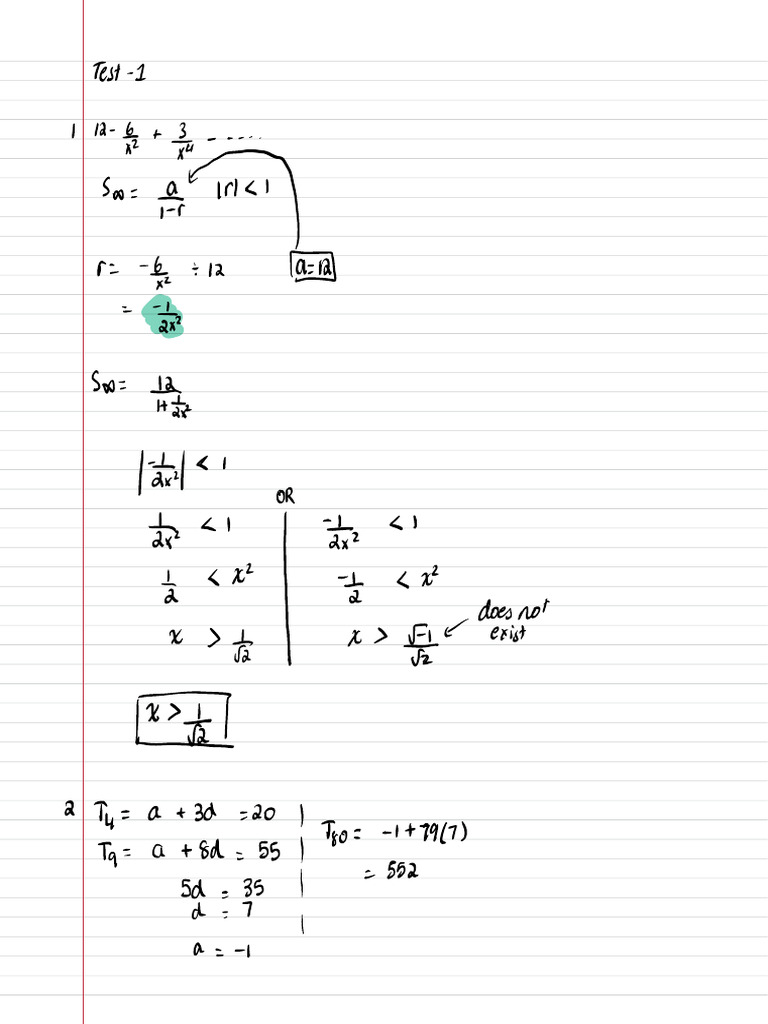 Test -1
1 12 - 6/x² + 3/x⁴ - .....
S∞ = a/(1-r) |r| < 1
r = -6/x² ÷ 12 a=12
= -1/2x²
S∞ = 12/(1+1/2x²)
|-1/2x²| < 1
OR
1/2x² < 1 -1/2x² < 1
1/2 < x² -1/2 < x²
x > 1/√2 x > √-1/√2 does not exist
x > 1/√2
2 T4 = a + 3d = 20
T9 = a + 8d = 55
5d = 35
d = 7
a = -1
T80 = -1 + 79(7)
= 552